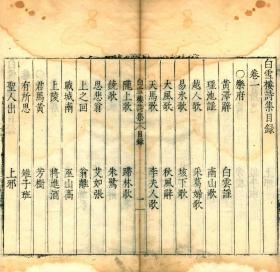 白雪樓詩集目録
卷一
○樂府
黄澤辭 白雲謡
地謡 南山歌
越人歌 采葛婦歌
易水歌 垓下歌
大風歌 秋風辭
天馬歌 李夫人歌
白雪樓詩集 目録
隴上歌 林歌
鐃歌 朱鷺
思悲翁 艾如張
上之回 翁離
戰城南 巫山高
上陵 將進酒
君馬黄 芳樹
有所思 雉子班
聖人出 上邪